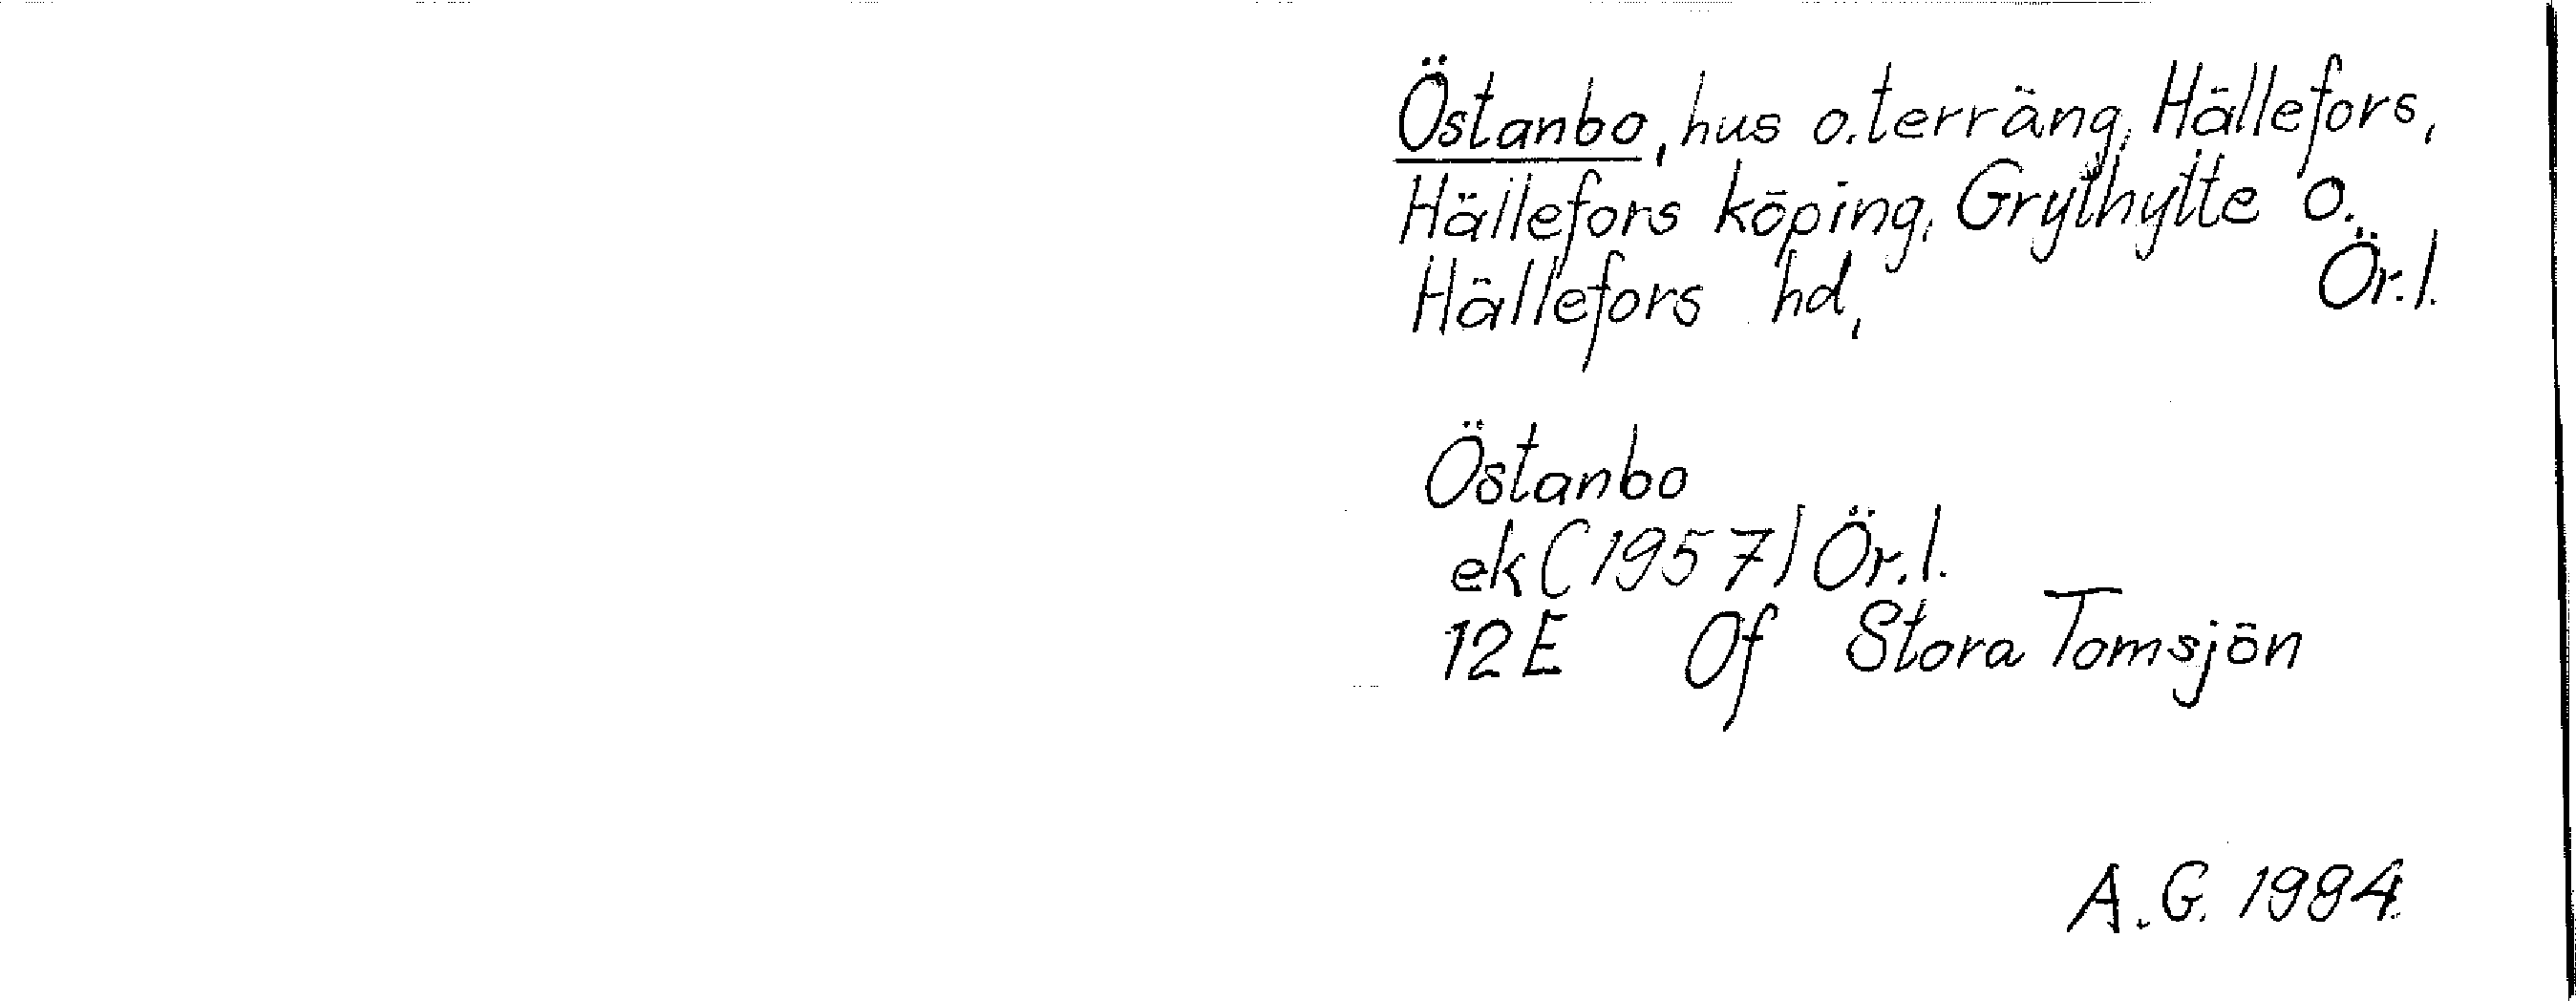 Östanbo, hus o. terräng, Hällefors,
Hällefors köping, Grythytte o.
Hällefors hd, Ör.l.
Östanbo
ek (1957) Ör.l.
12E Of Stora Tomsjön
A.G. 1984.